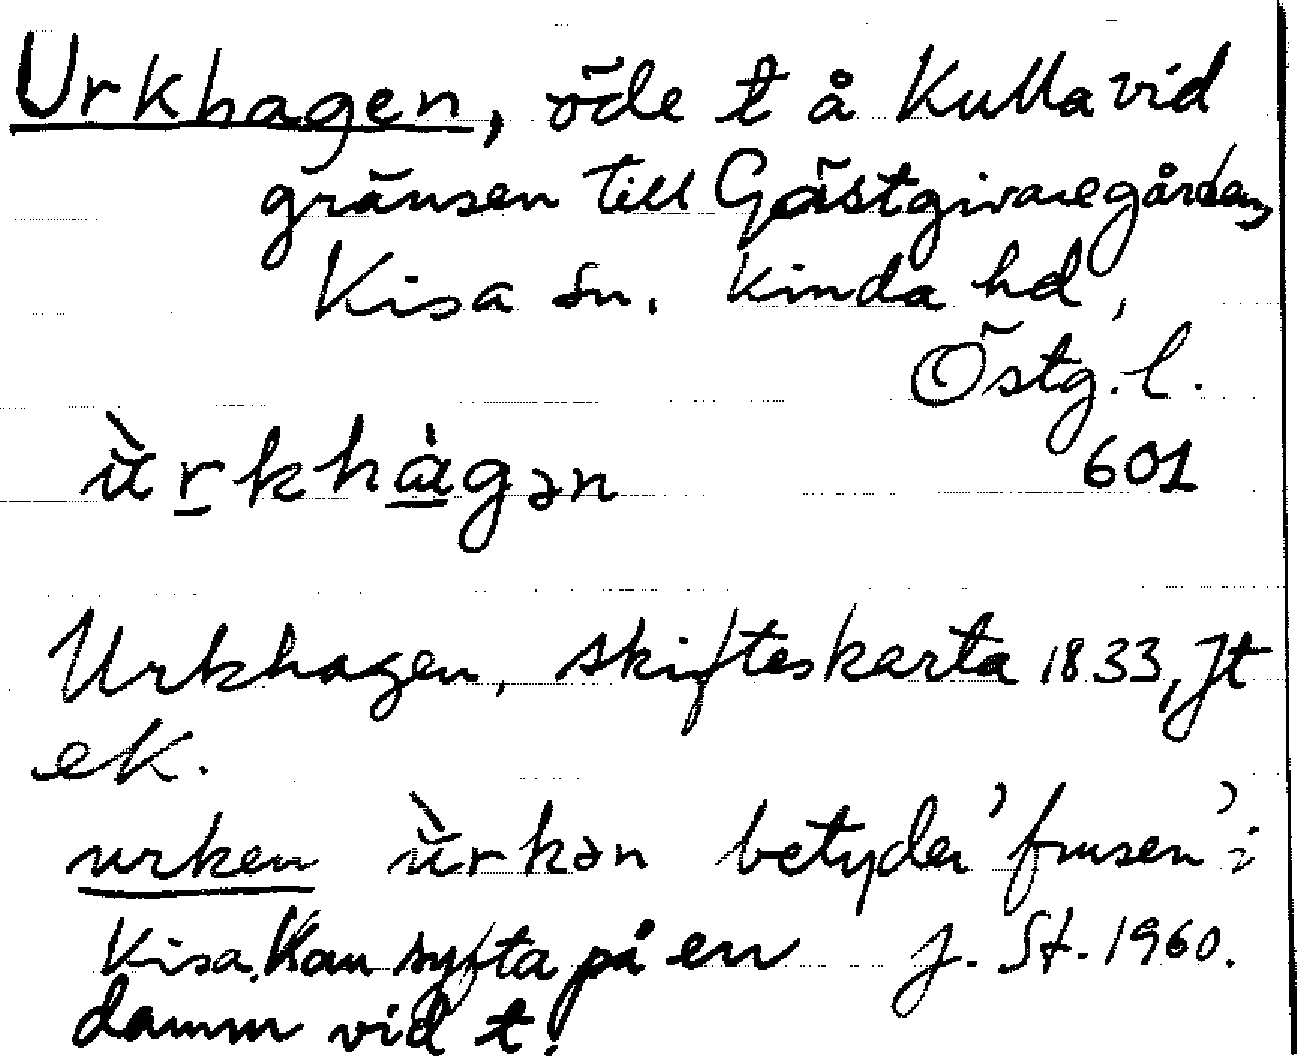 Urkhagen, öde t å Kulla vid
gränsen till Gästgivaregården,
Kisa sn. Kinda hd,
Östg. l.
601
ù̆rkhàgən
Urkhagen, skifteskarta 1833, Jt
ek.
urken ù̆rkən betyder 'frusen' i
Kisa. Kan syfta på en
damm vid t.
J. St. 1960.